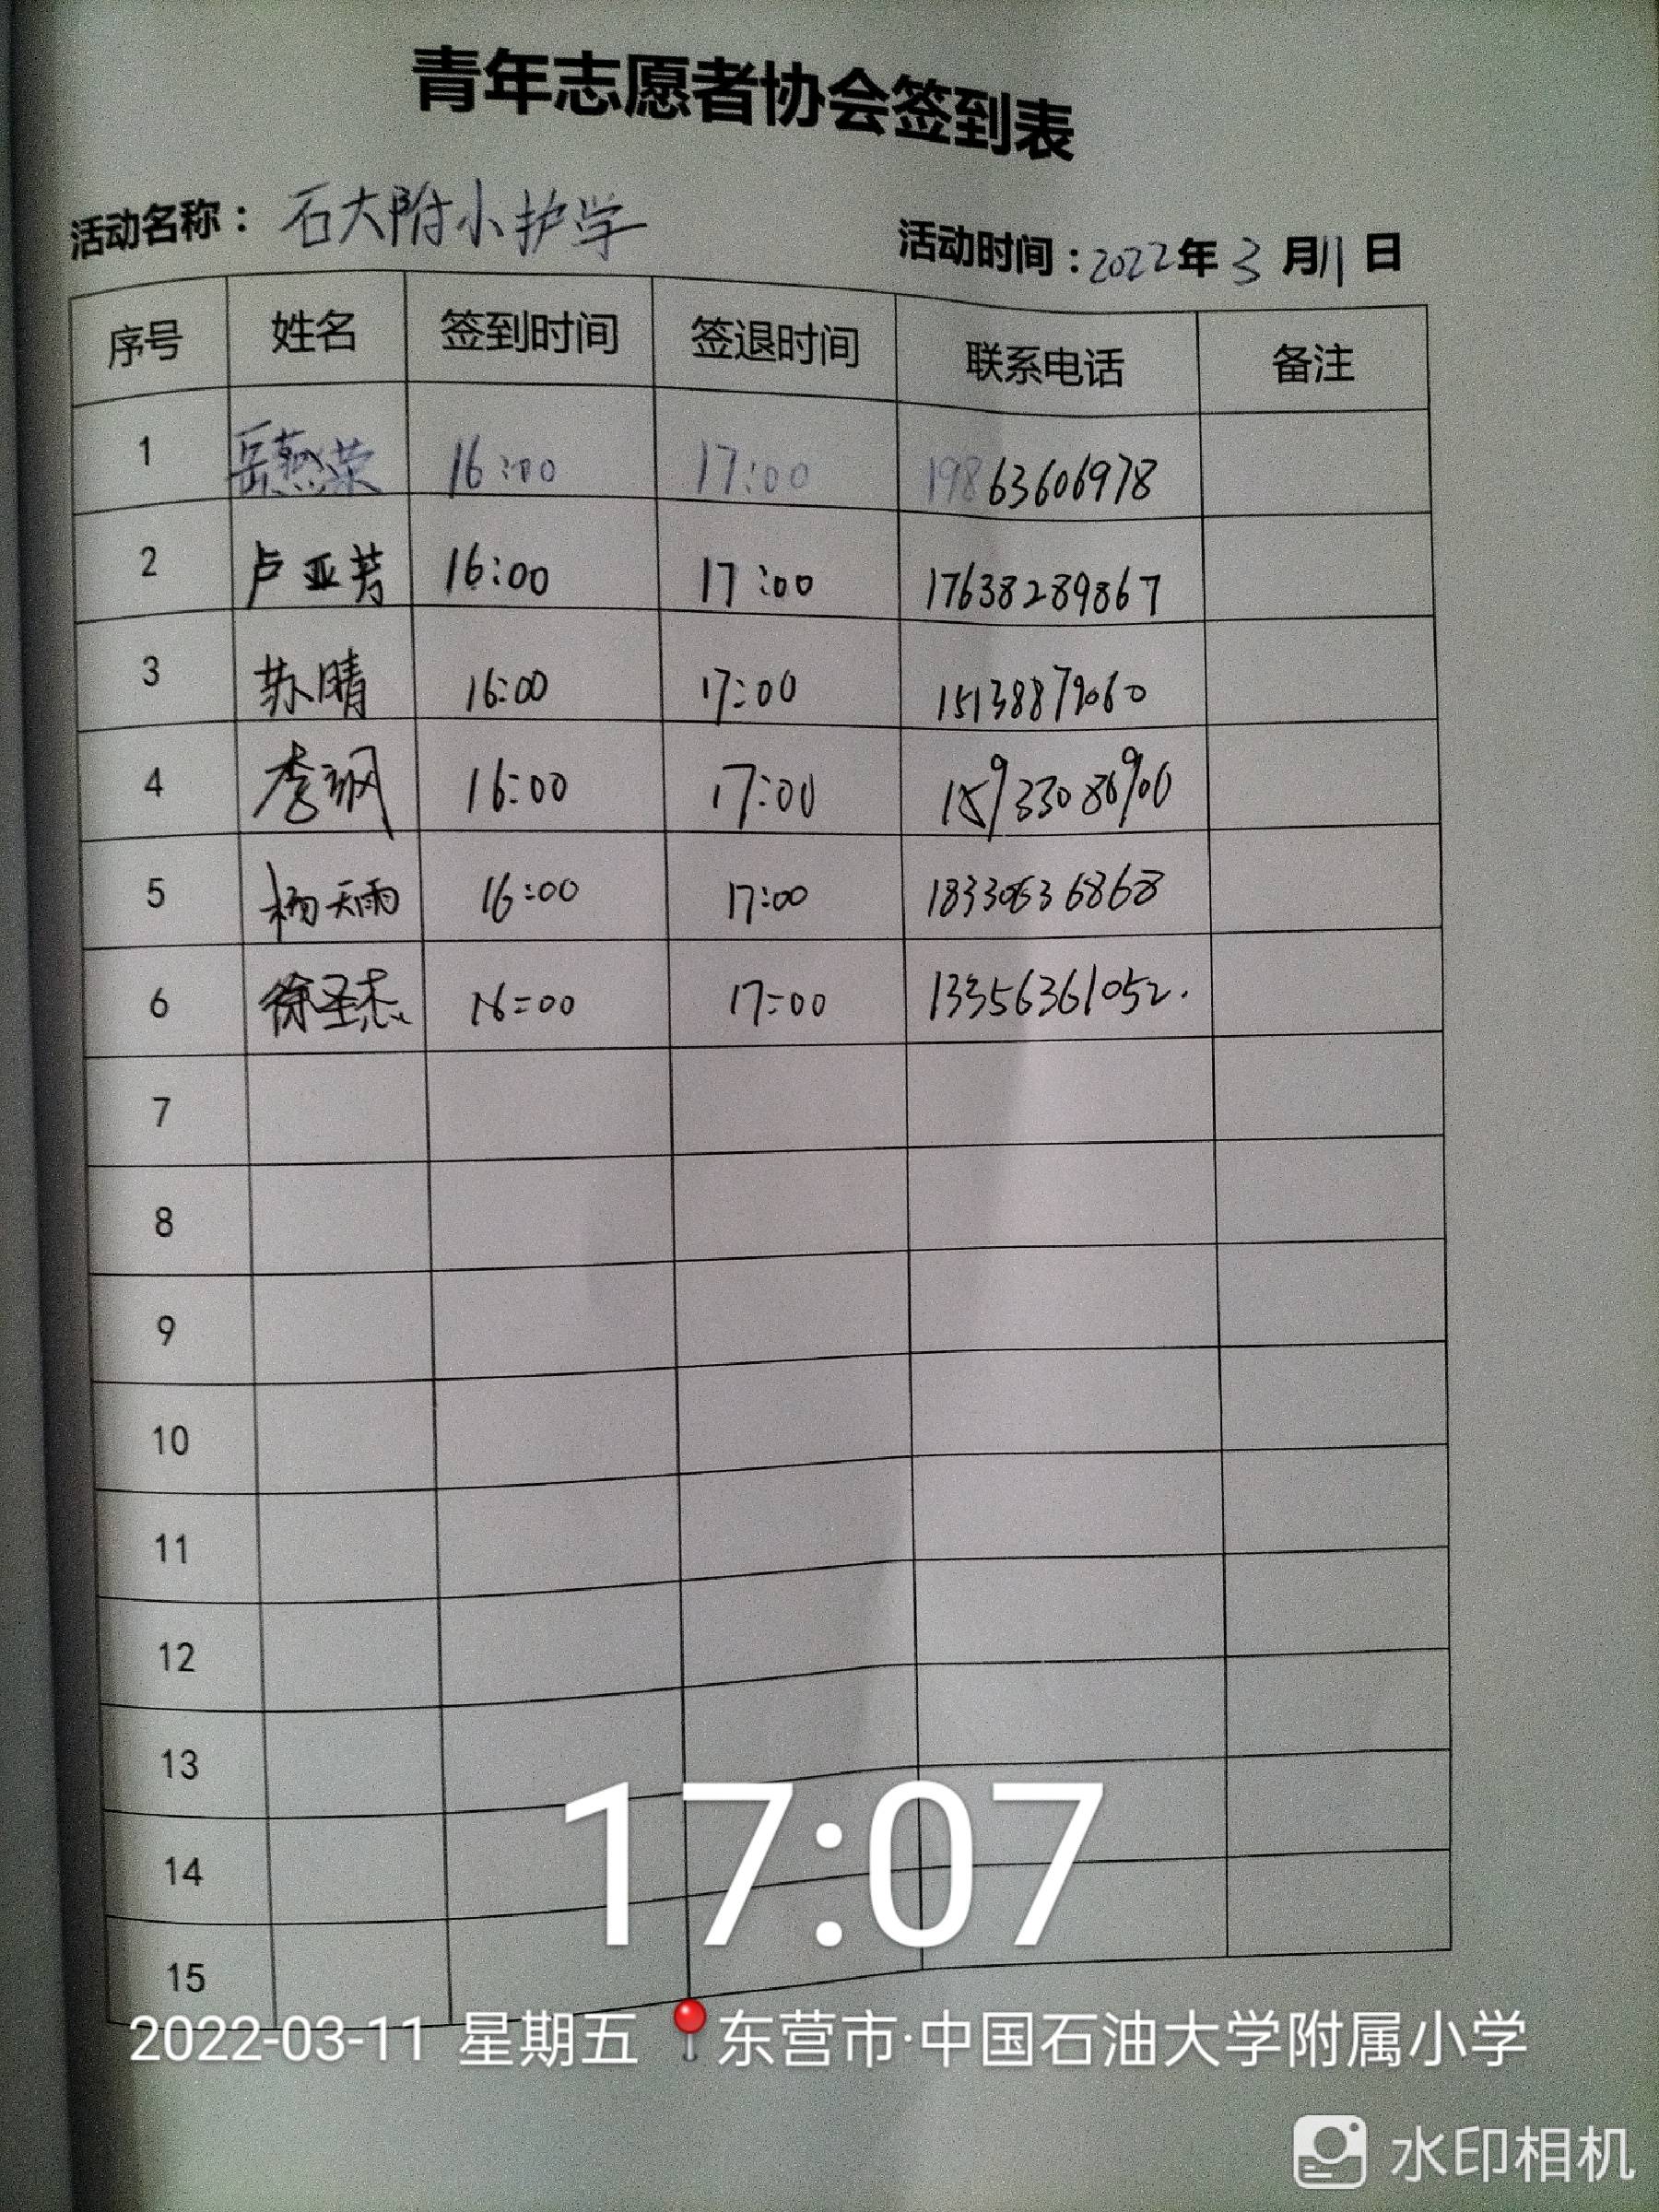 青年志愿者协会签到表
活动名称：石大附小护学 活动时间：2022年3月11日
序号 姓名 签到时间 签退时间 联系电话 备注
1 岳燕荣 16:00 17:00 19863606978
2 卢亚芳 16:00 17:00 17638289867
3 苏晴 16:00 17:00 15138879060
4 李飒 16:00 17:00
5 杨天雨 16:00 17:00 18330636868
6 徐圣杰 16:00 17:00 13356361052.
7
8
9
10
11
12
13
14
15
17:07
2022-03-11 星期五 东营市·中国石油大学附属小学
水印相机